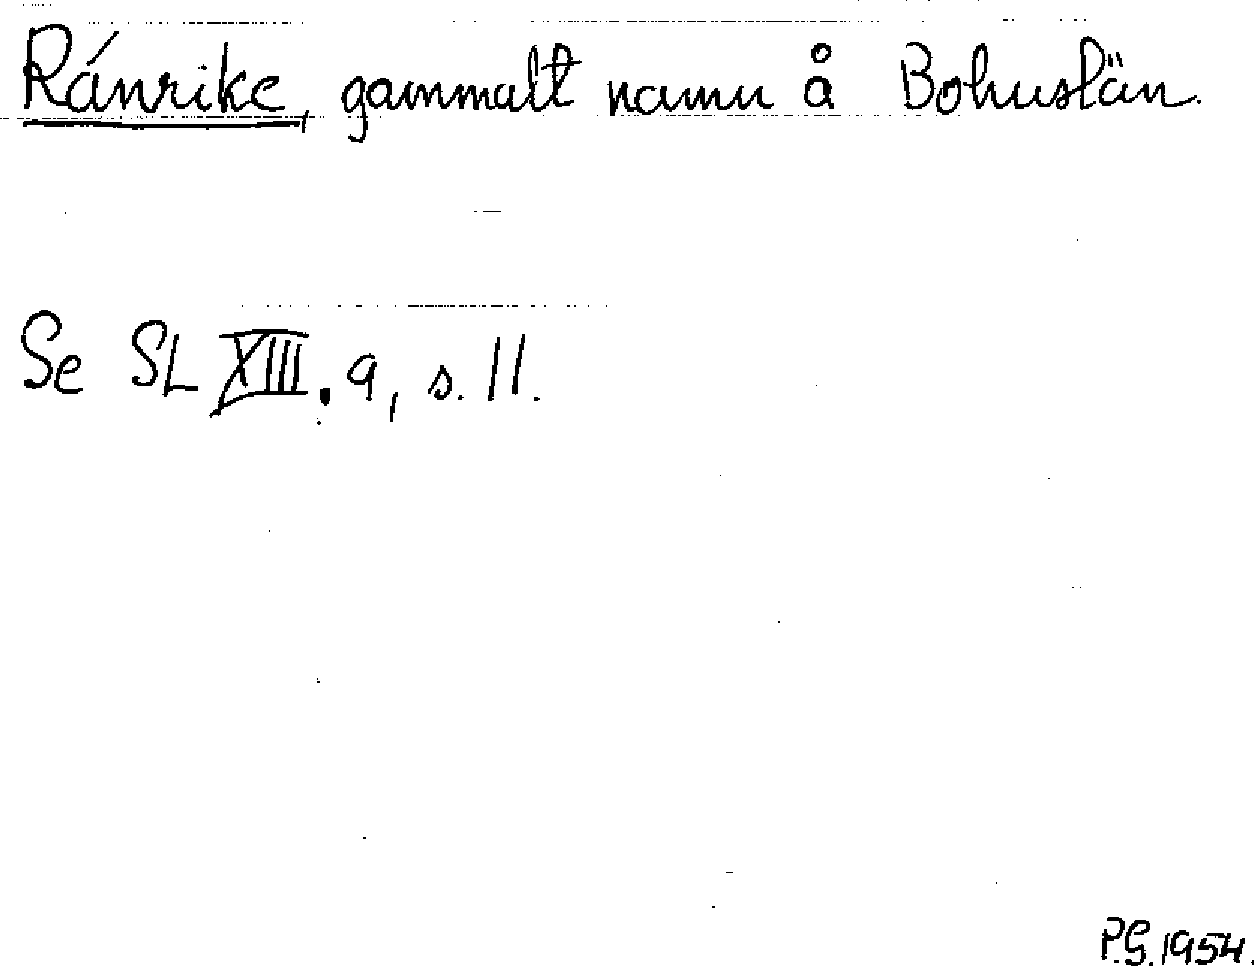 Ránrike, gammalt namn å Bohuslän.
Se SL XIII. 9, s. 11.
P.G. 1954.